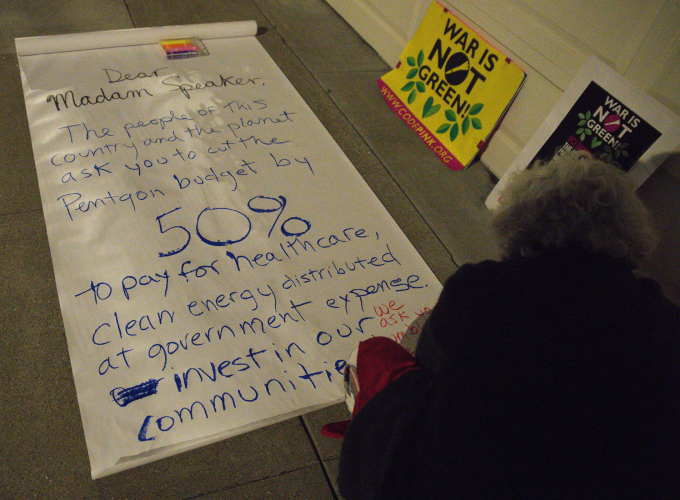 Dear
Madam Speaker,
The people of This
country and the planet
ask you to cut the
Pentgon budget by
50%
to pay for healthcare,
clean energy distributed
at government expense.
invest in our
communitie
We
ask yo
WAR IS
NOT
GREEN!!
WWW.CODEPINK.ORG
WAR IS
NOT
GREEN!